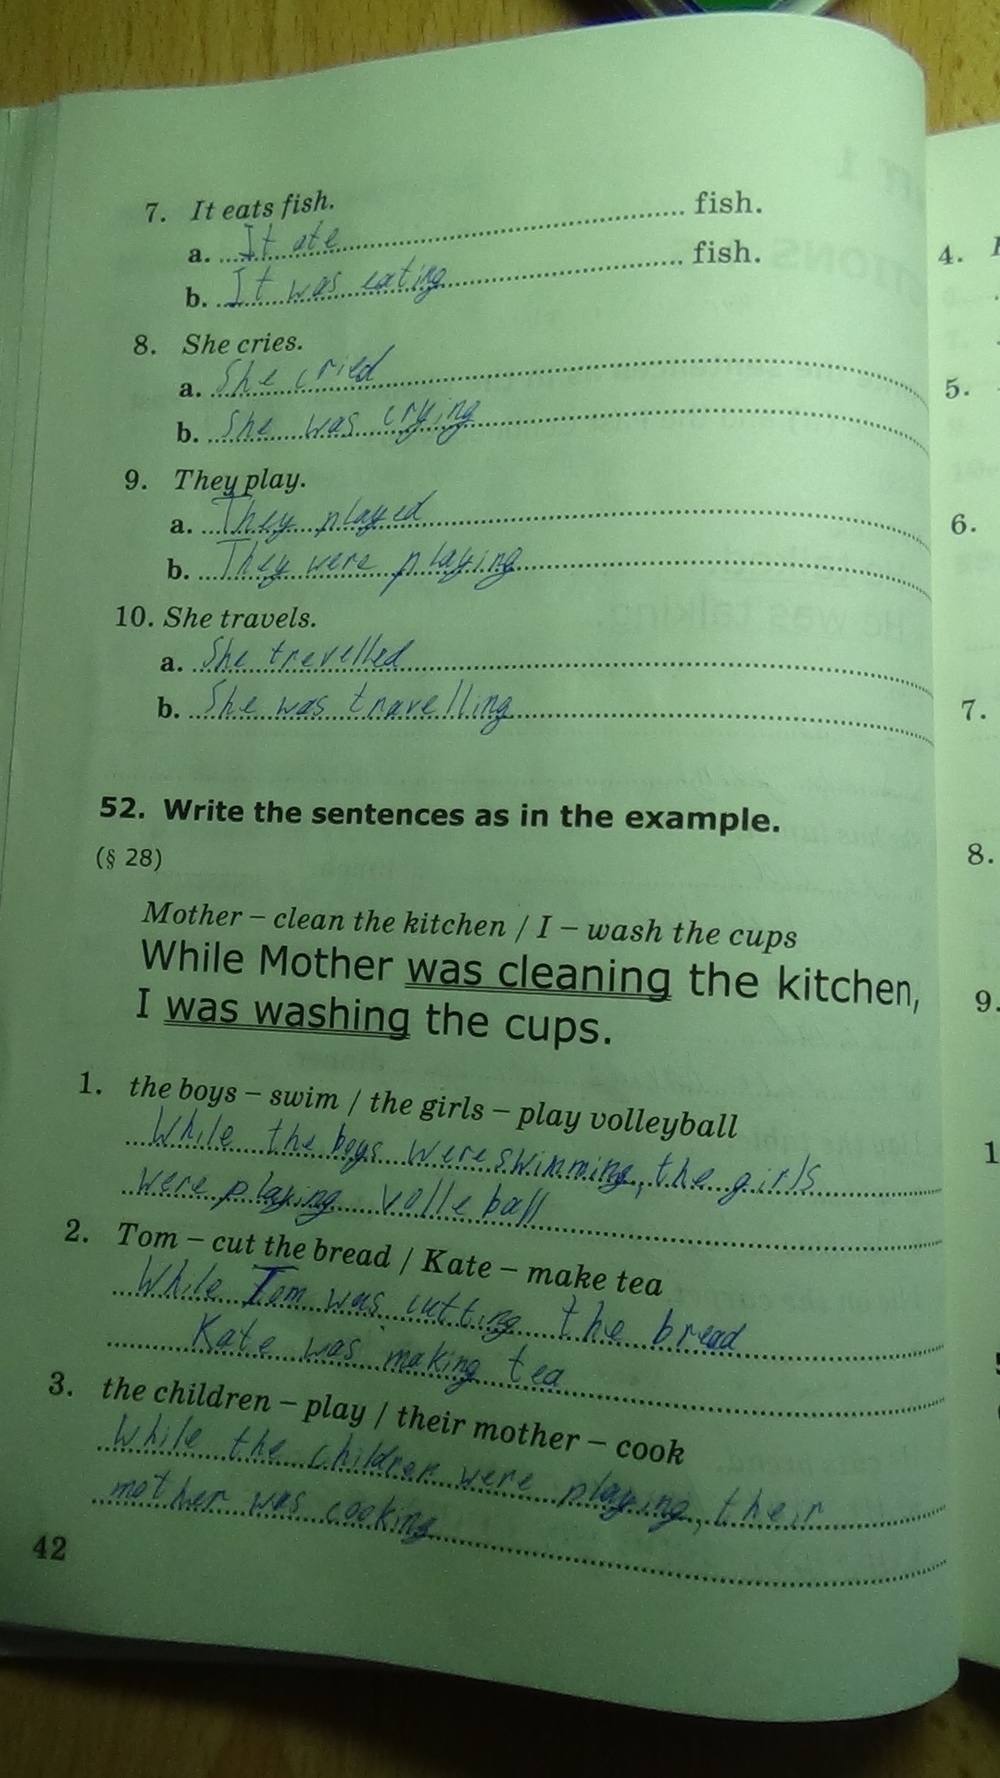 7. It eats fish.
a. It ate fish.
b. It was eating fish.
8. She cries.
a. She cried
b. She was crying
9. They play.
a. They played
b. They were playing
10. She travels.
a. She trevelled
b. She was travelling
52. Write the sentences as in the example.
(§ 28)
Mother – clean the kitchen / I – wash the cups
While Mother was cleaning the kitchen,
I was washing the cups.
1. the boys – swim / the girls – play volleyball
While the boys were swimming, the girls
were playing volle ball
2. Tom – cut the bread / Kate – make tea
While Tom was cutting the bread
Kate was making tea
3. the children – play / their mother – cook
While the children were playing, their
mother was cooking
42
4.
5.
6.
7.
8.
9.
1